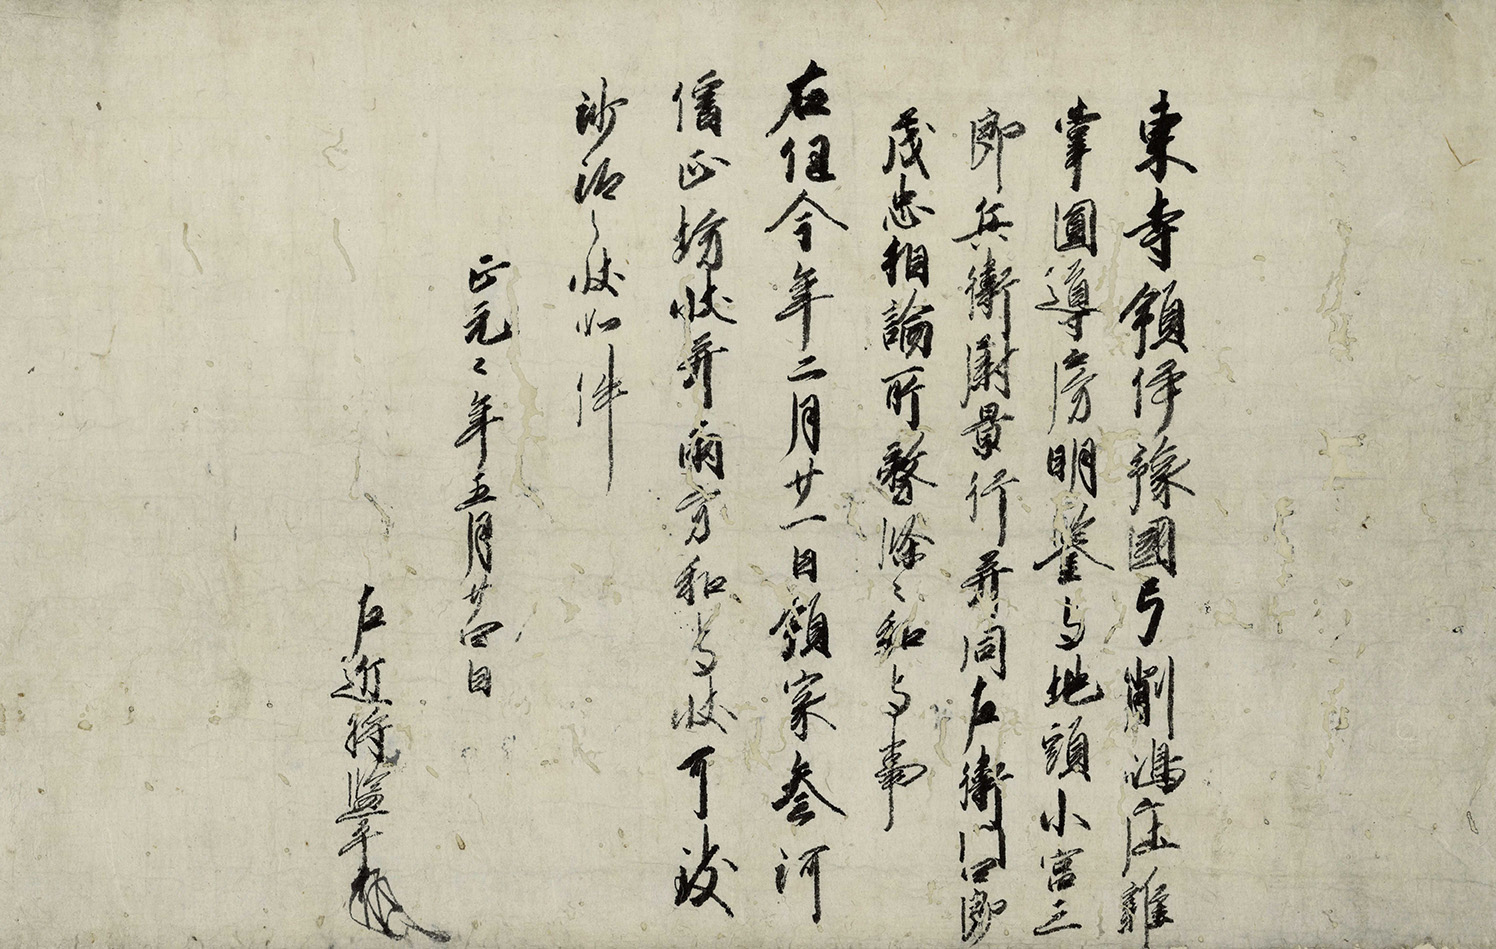 東寺領伊豫國弓削嶋庄雜
掌圓導房明鑒与地頭小宮三
郎兵衛尉景行并同左衛門四郎
茂忠相論所務條〻和与事
右任今年二月廿一日領家参河
僧正坊状并兩方和与状可致
沙汰之状如件
正元〻年五月廿四日
左近将監平